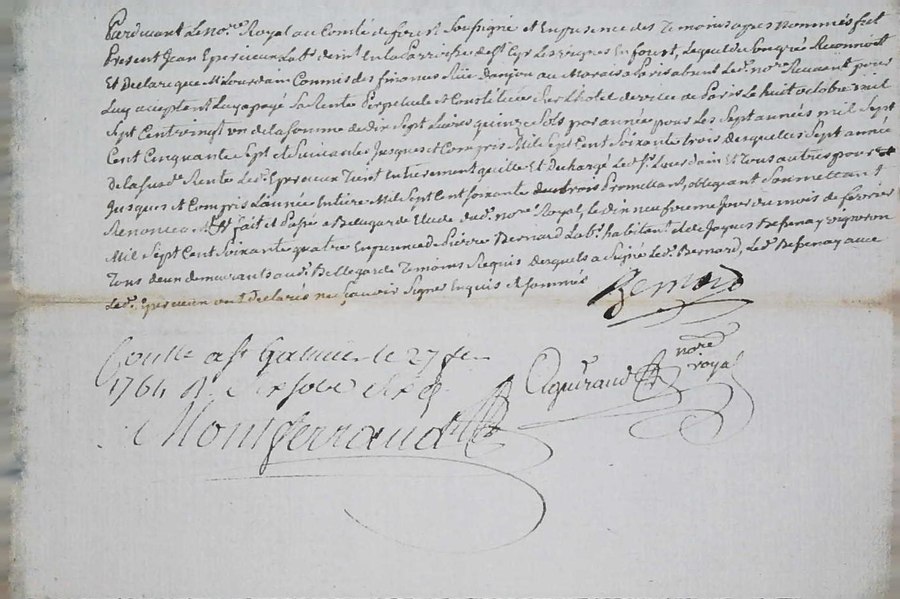 Pardevant Le nore. Royal au Comté de forest Soussigné et En presence des Temoins apres nommés fut
Present Jean Epercieux Labr. demt. En la Parroisse de st. Cyr Les Vignes En forest, Lequel de Son gré Reconnoit
Et Declare que Mr. Lourdain Commis des finances Rüe Danjou au Marais a Paris absent Led. nore. Recevent pour
Luy acceptent Luy a payé Sa Rente Perpetuele et Constitüée Sur L'hotel de ville de Paris Le huit octobre mil
Sept Cent vingt un de la Somme de Dix Sept Livres quinze Sols par année pour Les Sept années mil Sept
Cent Cinquante Sept et Suivantes Jusques et Compris Mil Sept Cent Soixante trois desqueles Sept année
de la susde. Rente Led. Epercieux Tient Entierement quitte Et dechargé Led. Sr. Lourdain Et tous autres pour et
Jusques et Compris Lannée Entière Mil Sept Cent soixante trois Promettant, obligeant Soumettant
Renoncee fait et Passé a Bellegarde Etude dud. nore. Royal, Le dix neufieme Jour du mois de fevrier
Mil Sept Cent Soixante quatre En presence de Pierre Bernard Labr. habitent et de Jaques Defenay vigneron
Tous deux demeurants aud. Bellegarde Temoins Requis desquels a Signé Led. Bernard, Led. Defenay avec
Led. Epercieux ont declarés ne Sçavoir Signer Enquis et sommés
Bernard
Conllé a st. Galmier le 27 fev
1764 R. sols
nore
royal
Montferrand